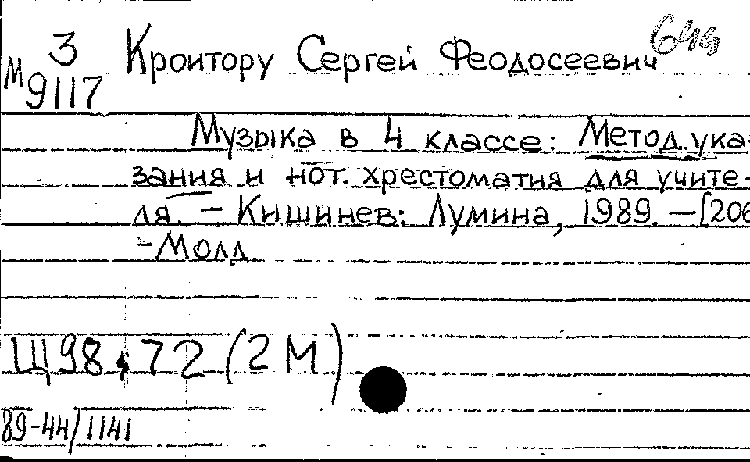 З Кроитору Сергей Феодосеевич
М 9117
Музыка в 4 классе: Метод. ука-
зания и нот. хрестоматия для учите-
ля. – Кишинев: Лумина, 1989. – [206
– Молд
Щ98.72 (2М)
89-44/1141